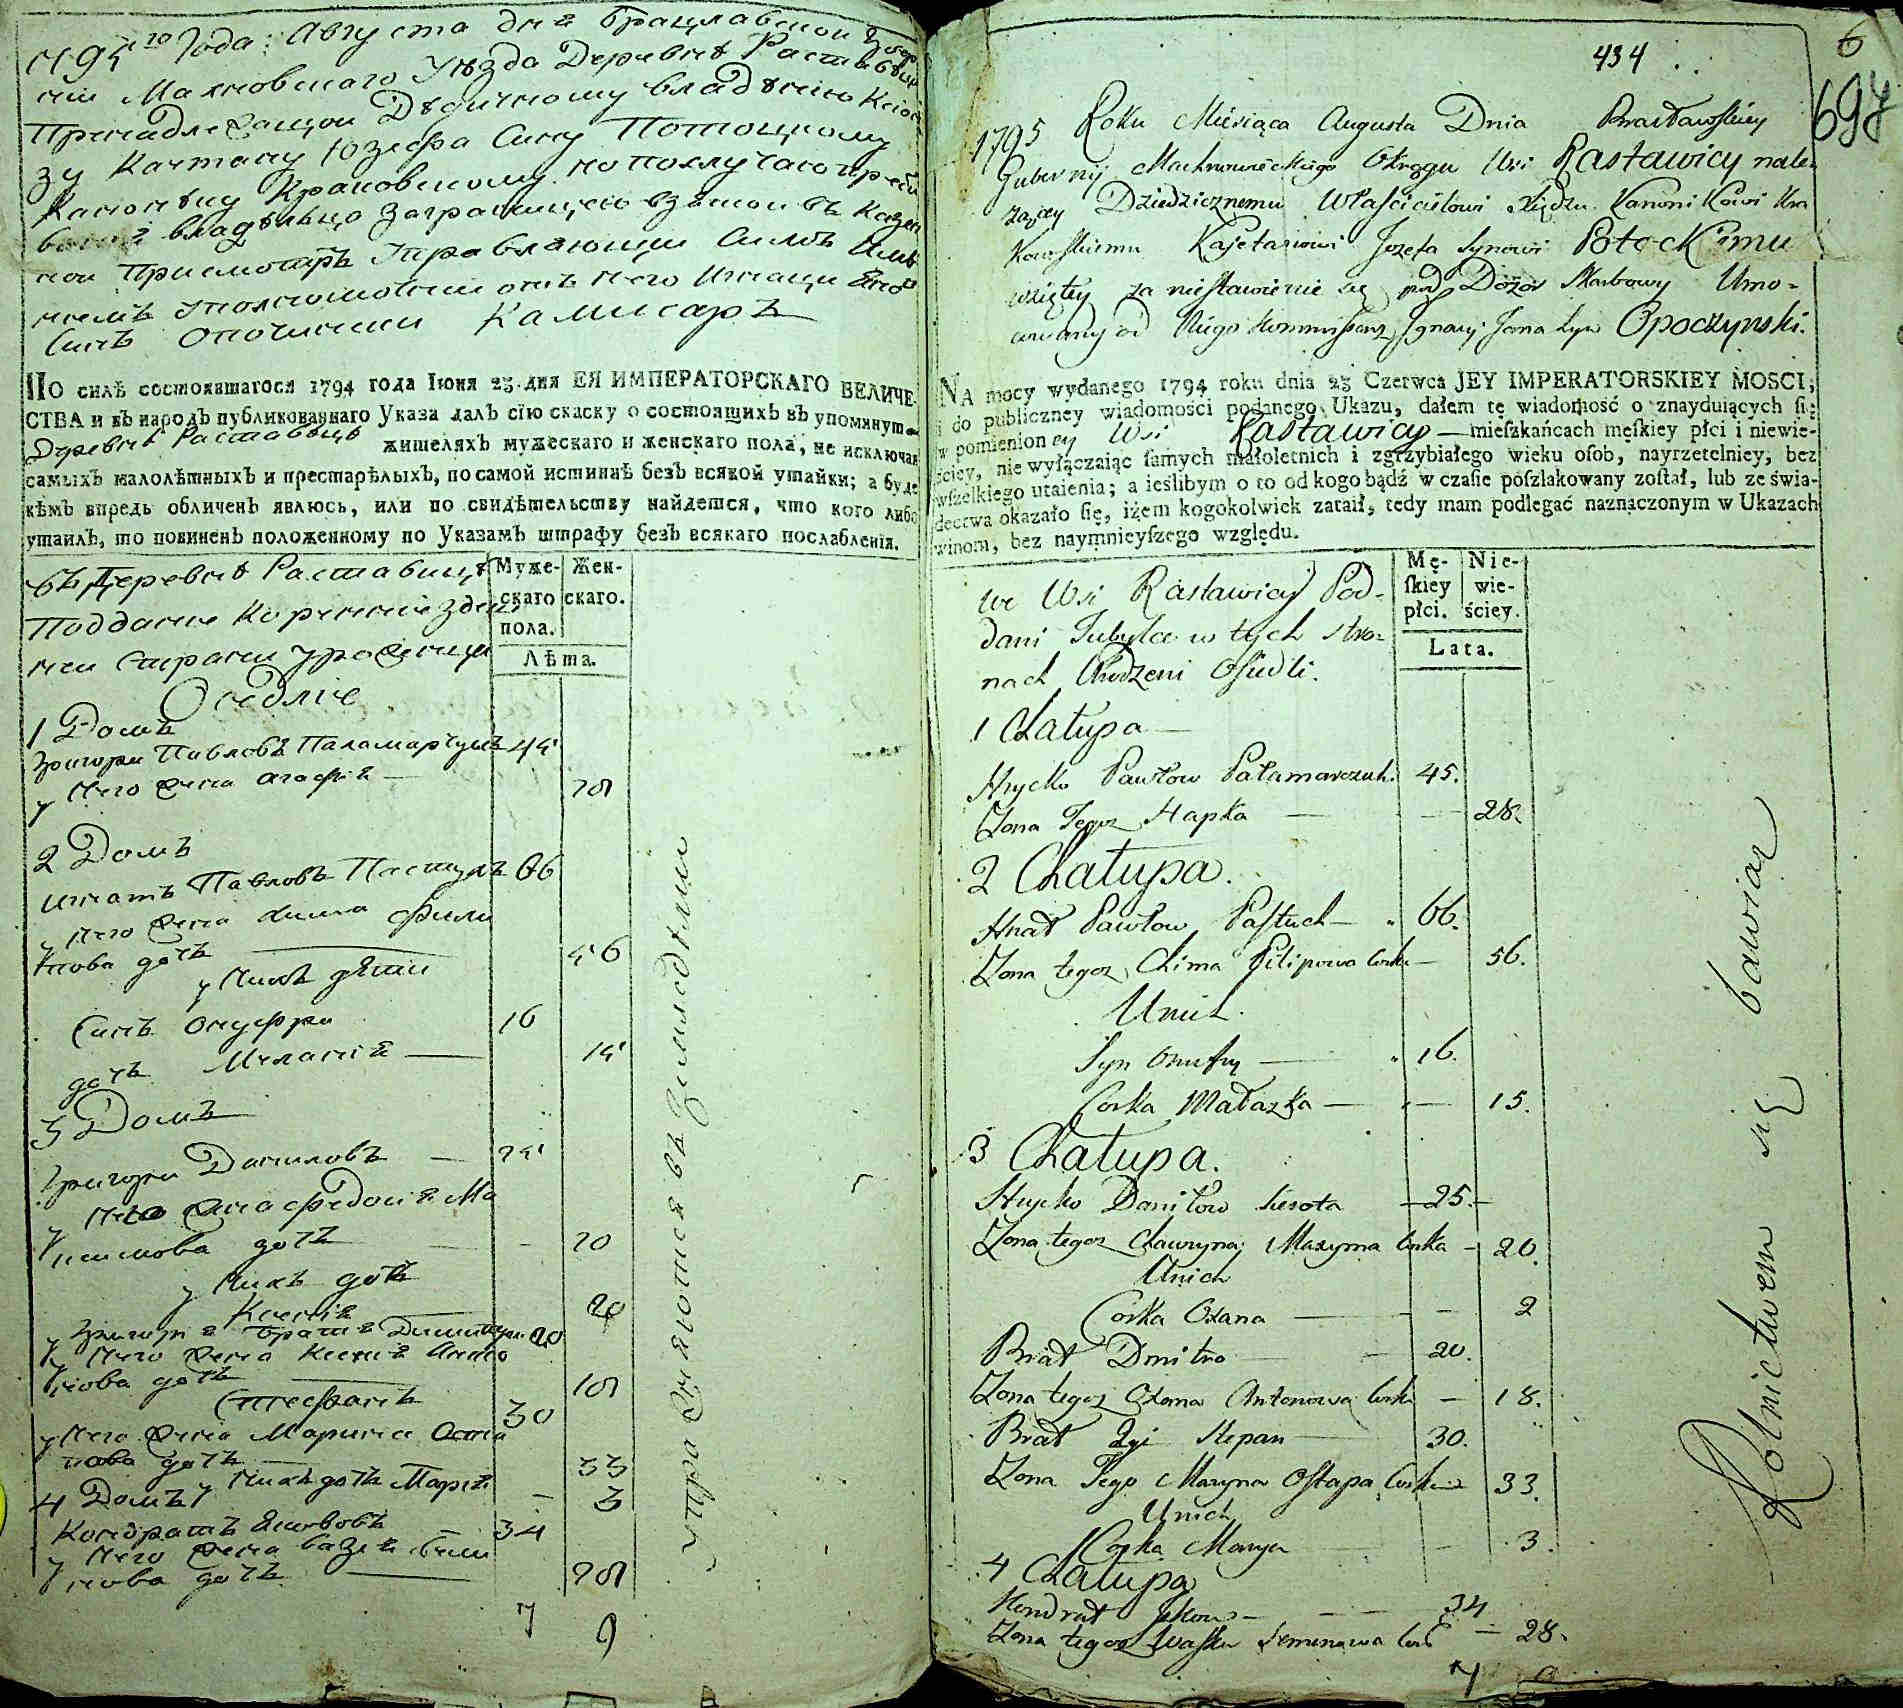 1795го Года: Августа дня Брацлавской Губер
нии Махновского Уѣзда Деревнѣ Раставицы
Принадлежащои Дѣдичному владѣнию Ксіон
зу Каэтану Юзефа Сину Потоцкому
Канонѣку Краковскому по неслучаю пребы
владѣльца заграницею взятои въ Казен
нои Присмотръ Управляющи Симъ Имѣ
ниемъ уполномочени отъ него Игнаци Яно
Синъ Опочински Камисаръ
ПО силѣ состоявшагося 1794 года Іюня 23 дня ЕЯ ИМПЕРАТОРСКАГО ВЕЛИЧЕ-
СТВА и въ народъ публикованнаго Указа далъ сїю скаску о состоящихъ въ упомянут
Деревнѣ Раставицѣ жителяхъ мужескаго и женскаго пола, не исключая
самыхъ малолѣтныхъ и престарѣлыхъ, по самой истиннѣ безъ всякой утайки; а буде
кѣмъ впредь обличенъ явлюсь, или по свидѣтельству найдется, что кого либо
утаилъ, то повиненъ положенному по Указамъ штрафу безъ всякаго послабленїя.
Муже-
скаго
пола.
Жен-
скаго.
Лѣта.
въ Деревнѣ Раставицѣ
Поддание Коренние здеш
неи Страни уроженци
Оседліе
1 Домъ
Григори Павловъ Паламарчукъ 45
у него жена Агафия — 28
2 Домъ
Игнатъ Павловъ Пастухъ 66
у него жена Химка Фили
пова дочь — 56
у нихъ дѣти
Синъ Онуфри 16
дочь Мелания — 15
3 Домъ
Григори Даниловъ — 25
у него жена Федосия Ма
ксимова дочь — 20
у нихъ дочь
Ксения 2
Григория братъ Димитри 20
у него жена Ксения Анто
нова дочь — 18
Стефанъ 30
у него жена Марина Оста
пова дочь — 33
у нихъ дочь Мария — 3
4 Домъ
Кондратъ Якововъ 34
у него жена Васия Семи
нова дочь — 28
7 9
упражняются въ Земледѣлии
434
6
697
1795 Roku Miesiąca Augusta Dnia Bracławskiey
Gubernij Machnowieckiego Okręgu Wsi Rastawicy nale
żącey Dziedzicznemu Właścicielowi Xiędzu Kanonikowi Kra
kowskiemu Kajetanowi Jozefa Synowi Potockiemu
wziętey za niestawienie się pod Dozór Skarbowy Umo-
cowany od Niego Kommissarz Jgnacy Jana Syn Opoczynski.
NA mocy wydanego 1794 roku dnia 23 Czerwca JEY IMPERATORSKIEY MOSCI,
i do publiczney wiadomości podanego Ukazu, dałem tę wiadomość o znayduiących ſię
w pomienioney Wsi Rastawicy — mieſzkańcach męſkiey płci i niewie-
ściey, nie wyłączaiąc ſamych małoletnich i zgrzybiałego wieku oſob, nayrzetelniey, bez
wſzelkiego utaienia; a ieślibym o to od kogo bądź w czaſie poſzlakowany zoſtał, lub ze świa-
dectwa okazało ſię, iżem kogokolwiek zataił, tedy mam podlegać naznaczonym w Ukazach
winom, bez naymnieyſzego względu.
Mę-
ſkiey
płci.
Nie-
wie-
ściey.
Lata.
we Wsi Rastawicy Pod-
dani Tubylce w tych stro-
nach Urodzeni Osiedli.
1 Chałupa —
Hrycko Pawłow Pałamarczuk. 45.
Zona Tegoz Hapka — 28.
2 Chałupa.
Hnat Pawłow Pastuch — 66.
Zona tegoz Chima Filipowa Corka — 56.
Unich.
Syn Onufry — 16.
Corka Małaszka — 15.
3 Chałupa.
Hrycko Daniłow Sierota — 25 —
Zona tegoz Chwezyna Maxyma Corka — 20.
Unich
Corka Oxana — 2
Brat Dmitro — 20.
Zona tegoz Oxana Antonowa Corka — 18.
Brat 2gi Stepan — 30.
Zona Tego Maryna Ostapa Corka 33.
Unich
Corka Marya — 3.
4 Chałupa
Kondrat Jakow — 34
Zona tegoz Waska Semenowa Cork — 28.
7 9
Rolnictwem się bawiąz